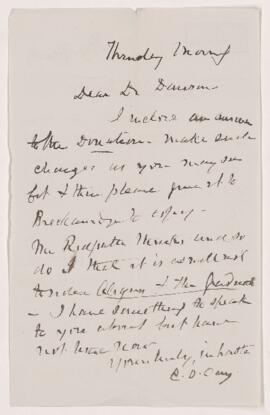 Thursday Morng
Dear Dr Dawson
I inclose an answer
to the Donation. Make such
changes as you may see
fit & then please give it to
Breckenridge to copy.
Mr Redpath thinks and so
do I that it is as well not
to
- I have something to speak
to you about but have
not time now
Yours truly, in haste